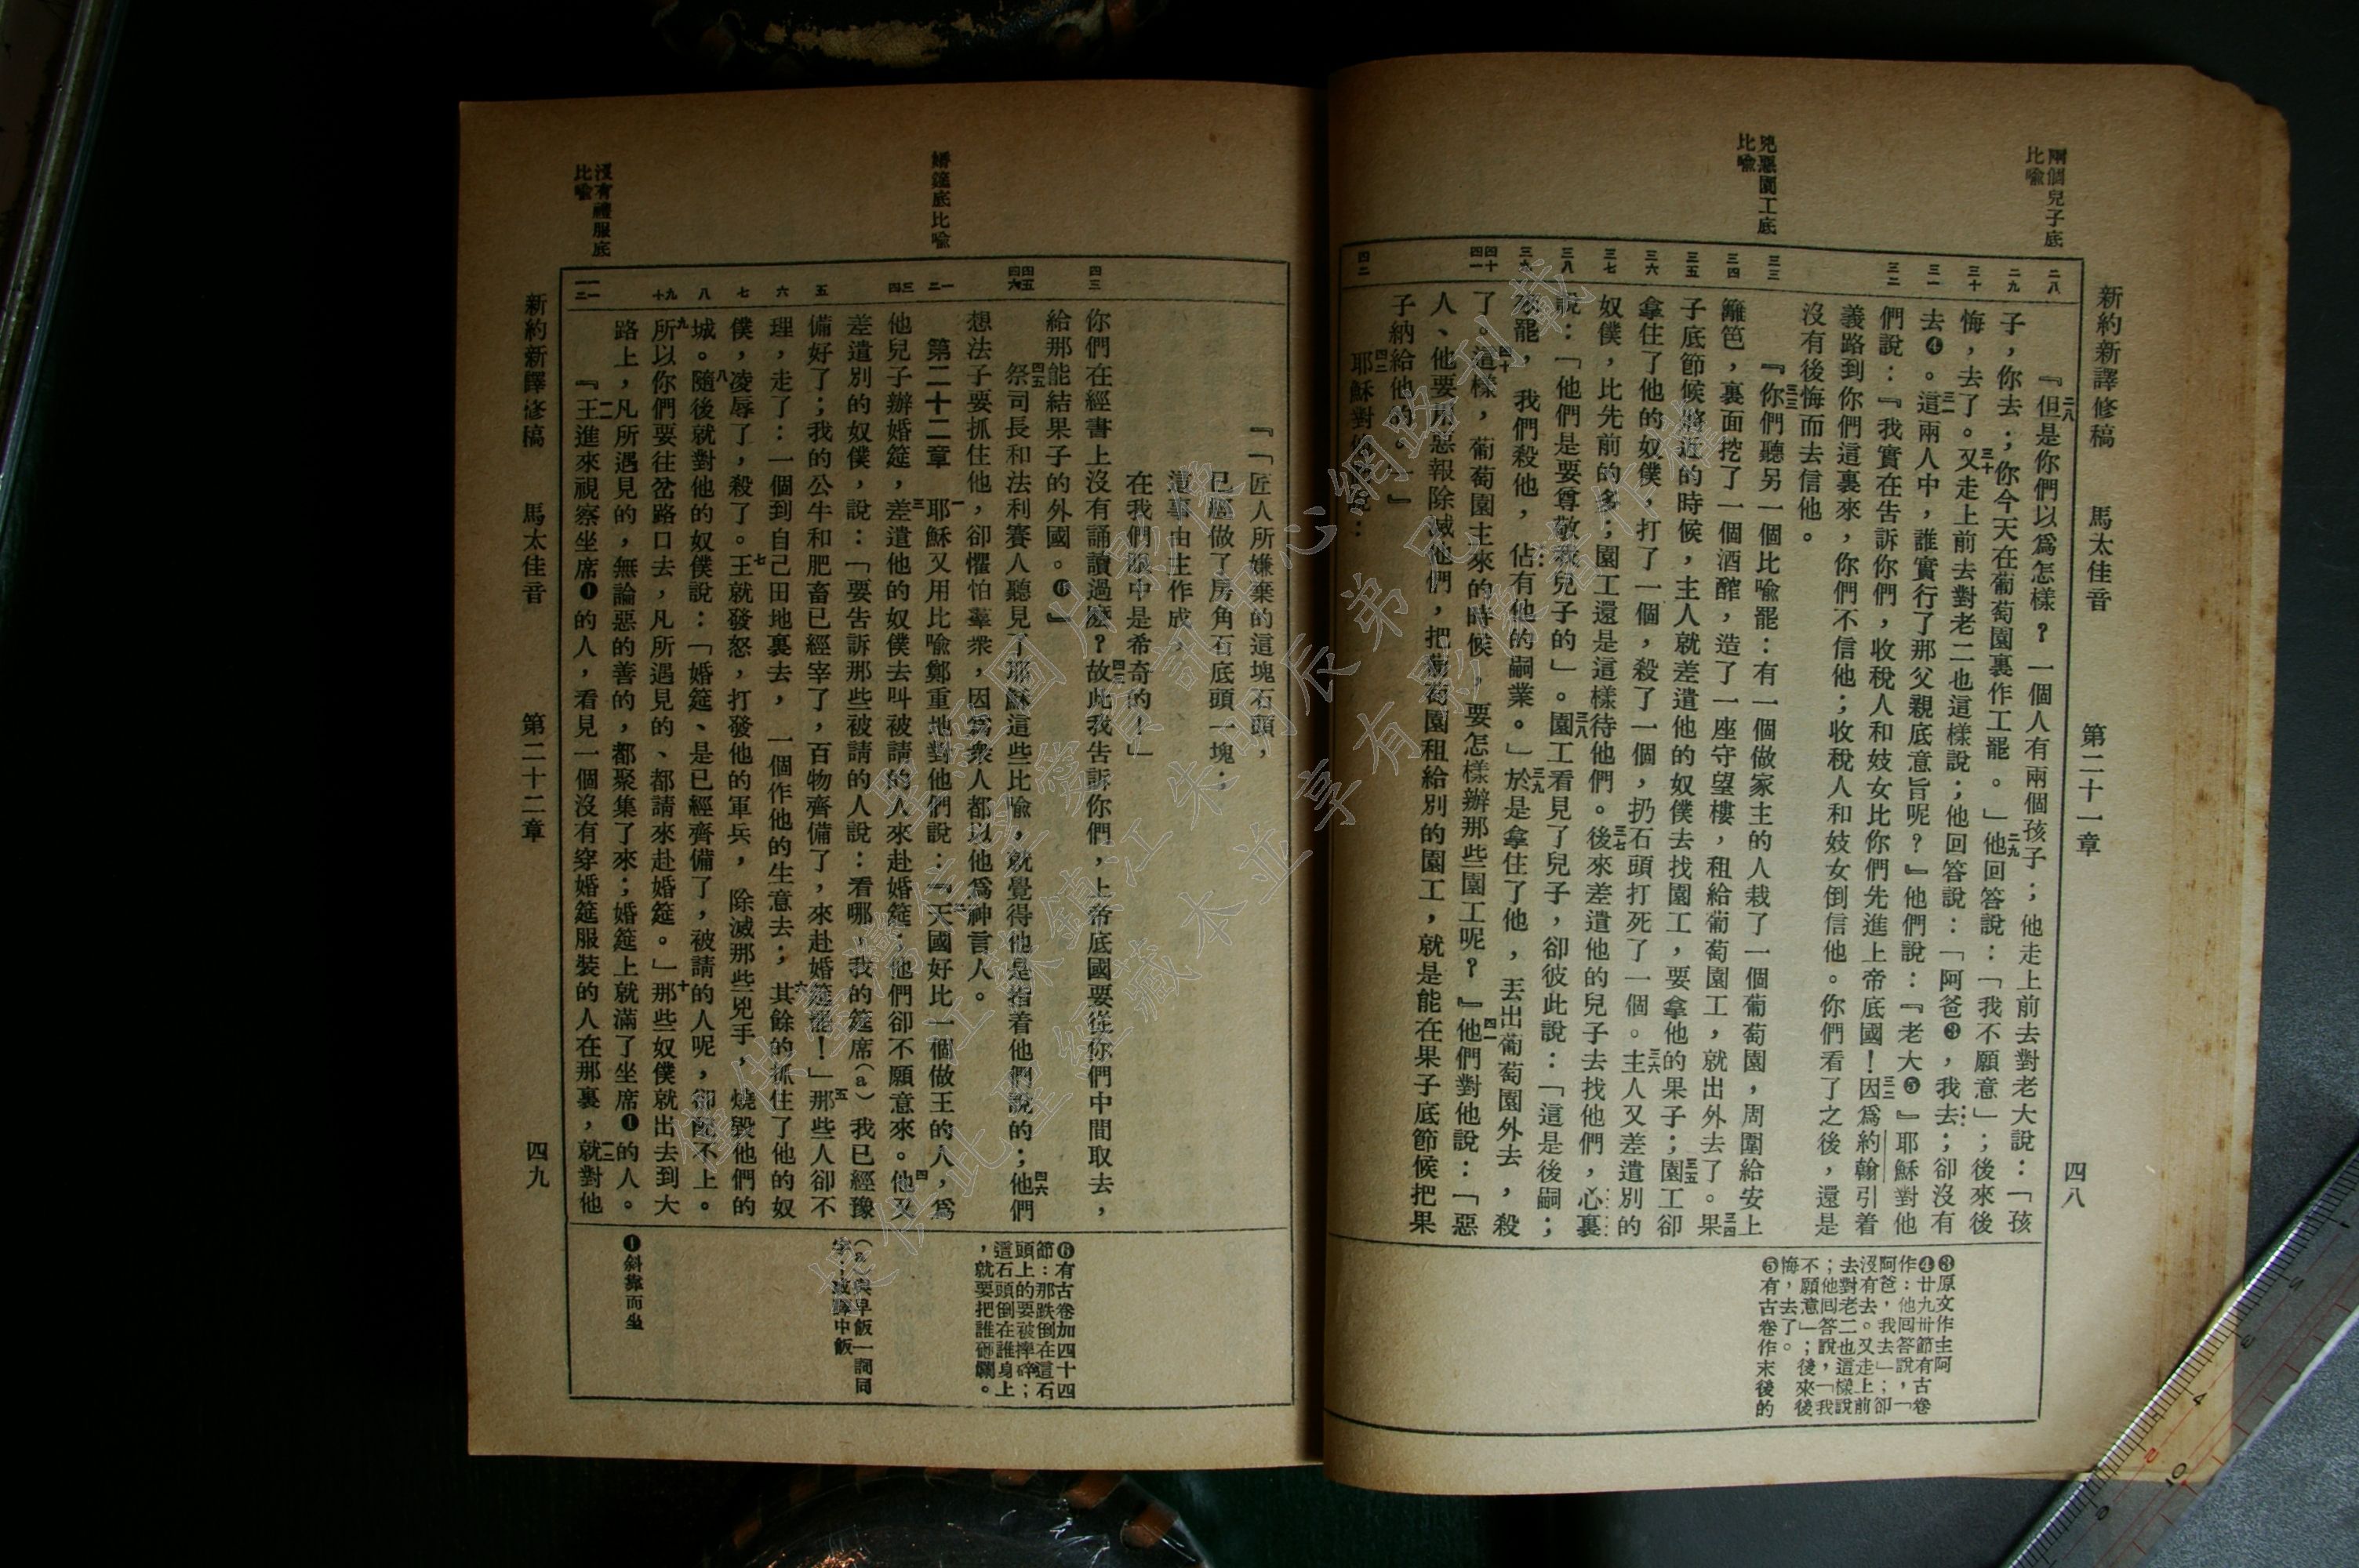 新約新譯修稿　馬太佳音　第二十一章　四八
兩個兒子底
比喻
兇惡園工底
比喻
『二八但是你們以爲怎樣？一個人有兩個孩子；他走上前去對老大說：「孩
子，你去；你今天在葡萄園裏作工罷。」二九他回答說：「我不願意」；後來後
悔，去了。三十又走上前去對老二也這樣說；他回答說：「阿爸❸，我去；卻沒有
去❹。三一這兩人中，誰實行了那父親底意旨呢？』他們說：『老大❺』耶穌對他
們說：『我實在告訴你們，收稅人和妓女比你們先進上帝底國！三二因爲約翰引着
義路到你們這裏來，你們不信他；收稅人和妓女倒信他。你們看了之後，還是
沒有後悔而去信他。
『三三你們聽另一個比喻罷：有一個做家主的人栽了一個葡萄園，周圍給安上
籬笆，裏面挖了一個酒醡，造了一座守望樓，租給葡萄園工，就出外去了。三四果
子底節候將近的時候，主人就差遣他的奴僕去找園工，要拿他的果子；三五園工卻
拿住了他的奴僕，打了一個，殺了一個，扔石頭打死了一個。三六主人又差遣別的
奴僕，比先前的多；園工還是這樣待他們。三七後來差遣他的兒子去找他們，心裏
說：「他們是要尊敬我兒子的」。三八園工看見了兒子，卻彼此說：「這是後嗣；
來罷，我們殺他，佔有他的嗣業。」三九於是拿住了他，丟出葡萄園外去，殺
了。四十這樣，葡萄園主來的時候，要怎樣辦那些園工呢？』四一他們對他說：「惡
人、他要用惡報除滅他們，把葡萄園租給別的園工，就是能在果子底節候把果
子納給他的。』
四二耶穌對他們說：
❸原文作主阿
❹廿九卅節有古卷
作：他回答說，「
阿爸，我去」；卻
沒有去。又走上前
去對老二也這樣說
；他回答說，「我
不願意」；後來後
悔，去了。
❺有古卷作末後的
『「匠人所嫌棄的這塊石頭，
已經做了房角石底頭一塊；
這事由主作成，
在我們眼中是希奇的！」
你們在經書上沒有誦讀過麼？四三故此我告訴你們，上帝底國要從你們中間取去，
給那能結果子的外國。❻』
四五祭司長和法利賽人聽見了耶穌這些比喻，就覺得他是指着他們說的；四六他們
想法子要抓住他，卻懼怕羣衆，因爲衆人都以他爲神言人。
第二十二章　一耶穌又用比喻鄭重地對他們說：『二天國好比一個做王的人，爲
他兒子辦婚筵，三差遣他的奴僕去叫被請的人來赴婚筵；他們卻不願意來。四他又
差遣別的奴僕，說：「要告訴那些被請的人說：看哪，我的筵席（a）我已經豫
備好了；我的公牛和肥畜已經宰了，百物齊備了，來赴婚筵罷！」五那些人卻不
理，走了：一個到自己田地裏去，一個作他的生意去；六其餘的抓住了他的奴
僕，凌辱了，殺了。七王就發怒，打發他的軍兵，除滅那些兇手，燒毀他們的
城。八隨後就對他的奴僕說：「婚筵、是已經齊備了，被請的人呢，卻配不上。
九所以你們要往岔路口去，凡所遇見的、都請來赴婚筵。」十那些奴僕就出去到大
路上，凡所遇見的，無論惡的善的，都聚集了來；婚筵上就滿了坐席❶的人。
『一一王進來視察坐席❶的人，看見一個沒有穿婚筵服裝的人在那裏，一二就對他
❻有古卷加四十四
節：那跌倒在這石
頭上的要被摔碎；
這石頭倒在誰身上
，就要把誰砸爛。
（a）與早飯一詞同
字；或譯中飯
❶斜靠而坐
婚筵底比喻
沒有禮服底
比喻
新約新譯修稿　馬太佳音　第二十二章　四九
僅供臺灣信望愛資訊中心網路刊載